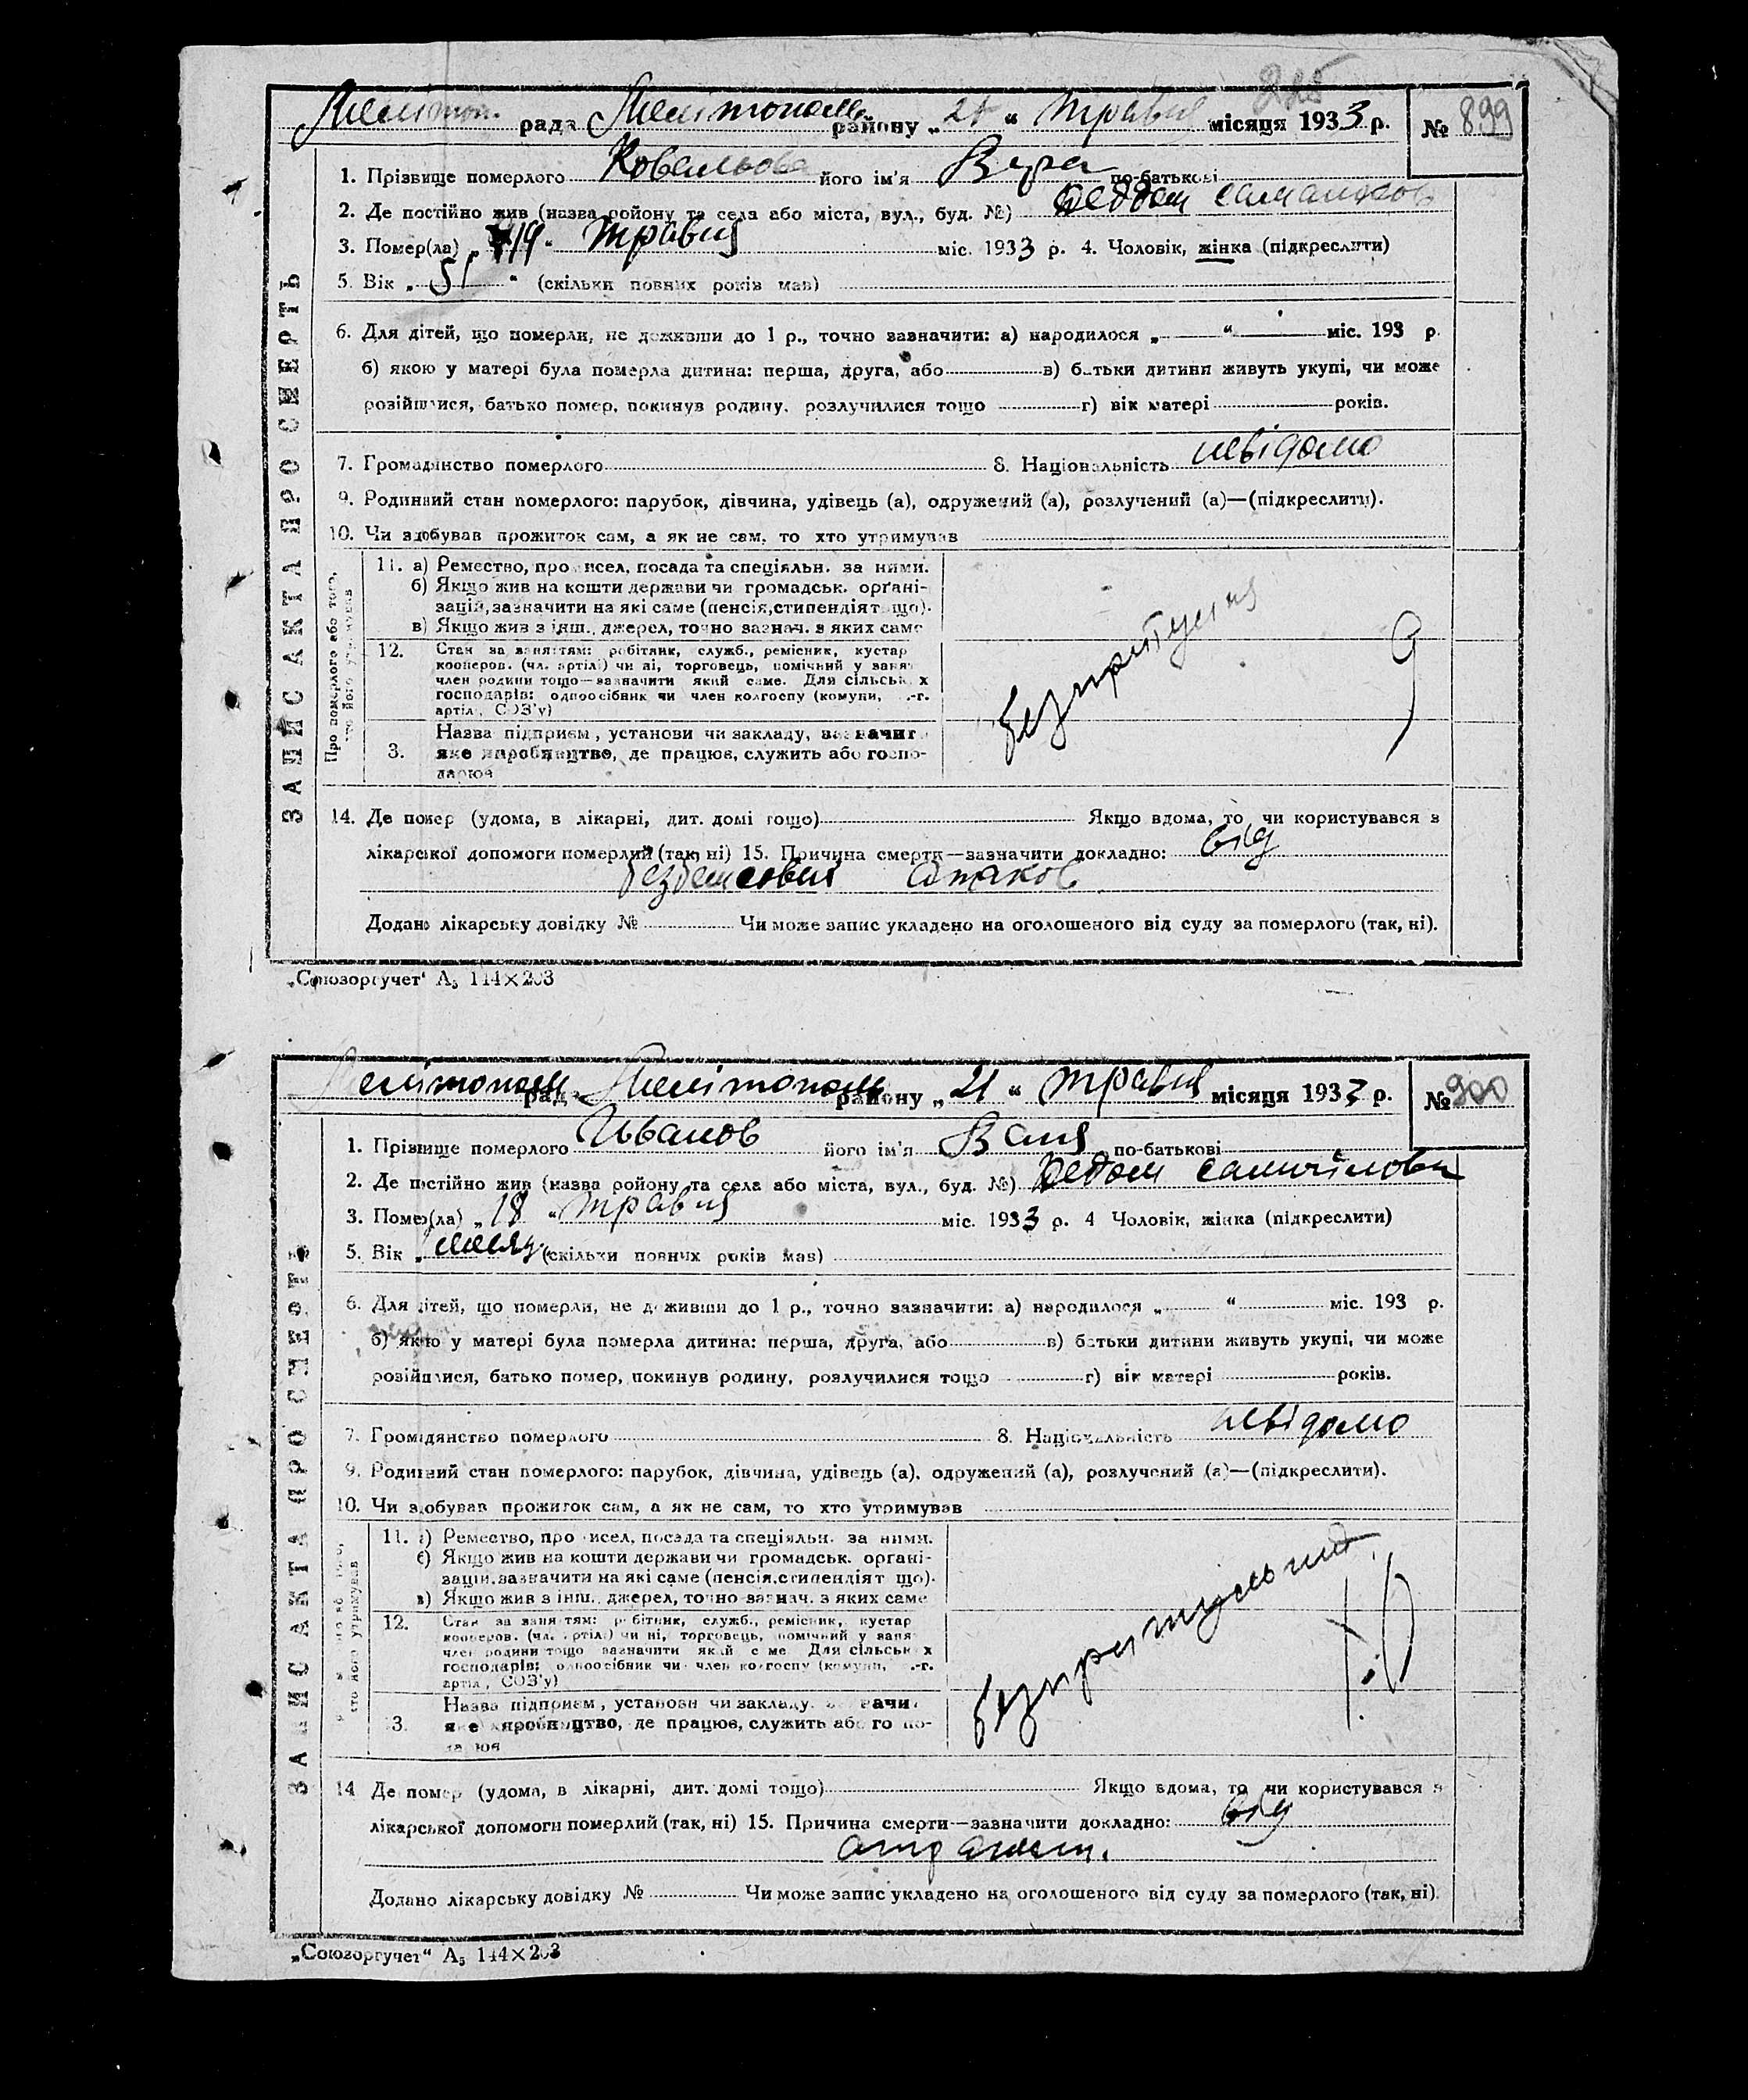 225
Мелітоп. рада Мелітополь району „21“ травня місяця 1933 р. № 899
1. Прізвище померлого Ковальова його ім'я Вера по-батькові
2. Де постійно жив (назва району та села або міста, вул., буд. №) Деддом
3. Помер(ла) „19“ травня міс. 1933 р. 4. Чоловік, жінка (підкреслити)
5. Вік „ “ (скільки повних років мав)
6. Для дітей, що померли, не доживши до 1 р., точно зазначити: а) народилося „ “ міс. 193 р.
б) якою у матері була померла дитина: перша, друга, або в) батьки дитини живуть укупі, чи може
розійшлися, батько помер, покинув родину, розлучилися тощо г) вік матері років.
7. Громадянство померлого 8. Національність невідомо
9. Родинний стан померлого: парубок, дівчина, удівець (а), одружений (а), розлучений (а)—(підкреслити).
10. Чи здобував прожиток сам, а як не сам, то хто утримував
ЗАПИС АКТА ПРО СМЕРТЬ
Про померлого або того, хто його утримував
11. а) Ремество, про исел, посада та спеціяльн. за ними.
б) Якщо жив на кошти держави чи громадськ. органі-
зацій, зазначити на які саме (пенсія, стипендіят що).
в) Якщо жив з інш. джерел, точно зазнач. з яких саме
12. Стан за заняттям: робітник, служб., ремісник, кустар
кооперов. (чл. артілі) чи ні, торговець, помічний у занят
член родини тощо—зазначити який саме. Для сільськ х
господарів: одноосібник чи член колгоспу (комуни, .-г.
артіл , СОЗ'у)
безпритульня
9
3. Назва підприєм , установи чи закладу, зазначит
яке виробництво, де працює, служить або госпо-
дарює
14. Де помер (удома, в лікарні, дит. домі тощо) Якщо вдома, то чи користувався з
лікарської допомоги померлий (так, ні) 15. Причина смерти—зазначити докладно: від
Додано лікарську довідку № Чи може запис укладено на оголошеного від суду за померлого (так, ні).
„Союзоргучет“ А5 144×203
Мелітополь рада Мелітополь району „21“ травня місяця 1933 р. № 900
1. Прізвище померлого Іванов його ім'я Ваня по-батькові
2. Де постійно жив (назва району та села або міста, вул., буд. №) Дедом
3. Помер(ла) „18“ травня міс. 1933 р. 4 Чоловік, жінка (підкреслити)
5. Вік „ (скільки повних років мав)
6. Для дітей, що померли, не доживши до 1 р., точно зазначити: а) народилося „ “ міс. 193 р.
б) якою у матері була померла дитина: перша, друга, або в) батьки дитини живуть укупі, чи може
розійшлися, батько помер, покинув родину, розлучилися тощо г) вік матері років.
7. Громадянство померлого 8. Національність невідомо
9. Родинний стан померлого: парубок, дівчина, удівець (а), одружений (а), розлучений (а)—(підкреслити).
10. Чи здобував прожиток сам, а як не сам, то хто утримував
ЗАПИС АКТА ПРО СМЕРТЬ
хто його утримував
11. а) Ремество, про исел, посада та спеціяльн. за ними.
б) Якщо жив на кошти держави чи громадськ. органі-
зацій, зазначити на які саме (пенсія, стипендіят що).
в) Якщо жив з інш. джерел, точно зазнач. з яких саме
12. Стан за заняттям: робітник, служб., ремісник, кустар
кооперов. (чл. артілі) чи ні, торговець, помічний у занят
член родини тощо зазначити який саме Для сільськ х
господарів: одноосібник чи член колгоспу (комуни, .-г.
артіл , СОЗ'у)
безпритульний
3. Назва підприєм , установи чи закладу, зазначи
яке виробництво, де працює, служить або госпо-
дарює
14 Де помер (удома, в лікарні, дит. домі тощо) Якщо вдома, то чи користувався з
лікарської допомоги померлий (так, ні) 15. Причина смерти—зазначити докладно: від
Додано лікарську довідку № Чи може запис укладено на оголошеного від суду за померлого (так, ні).
„Союзоргучет“ А5 144×203